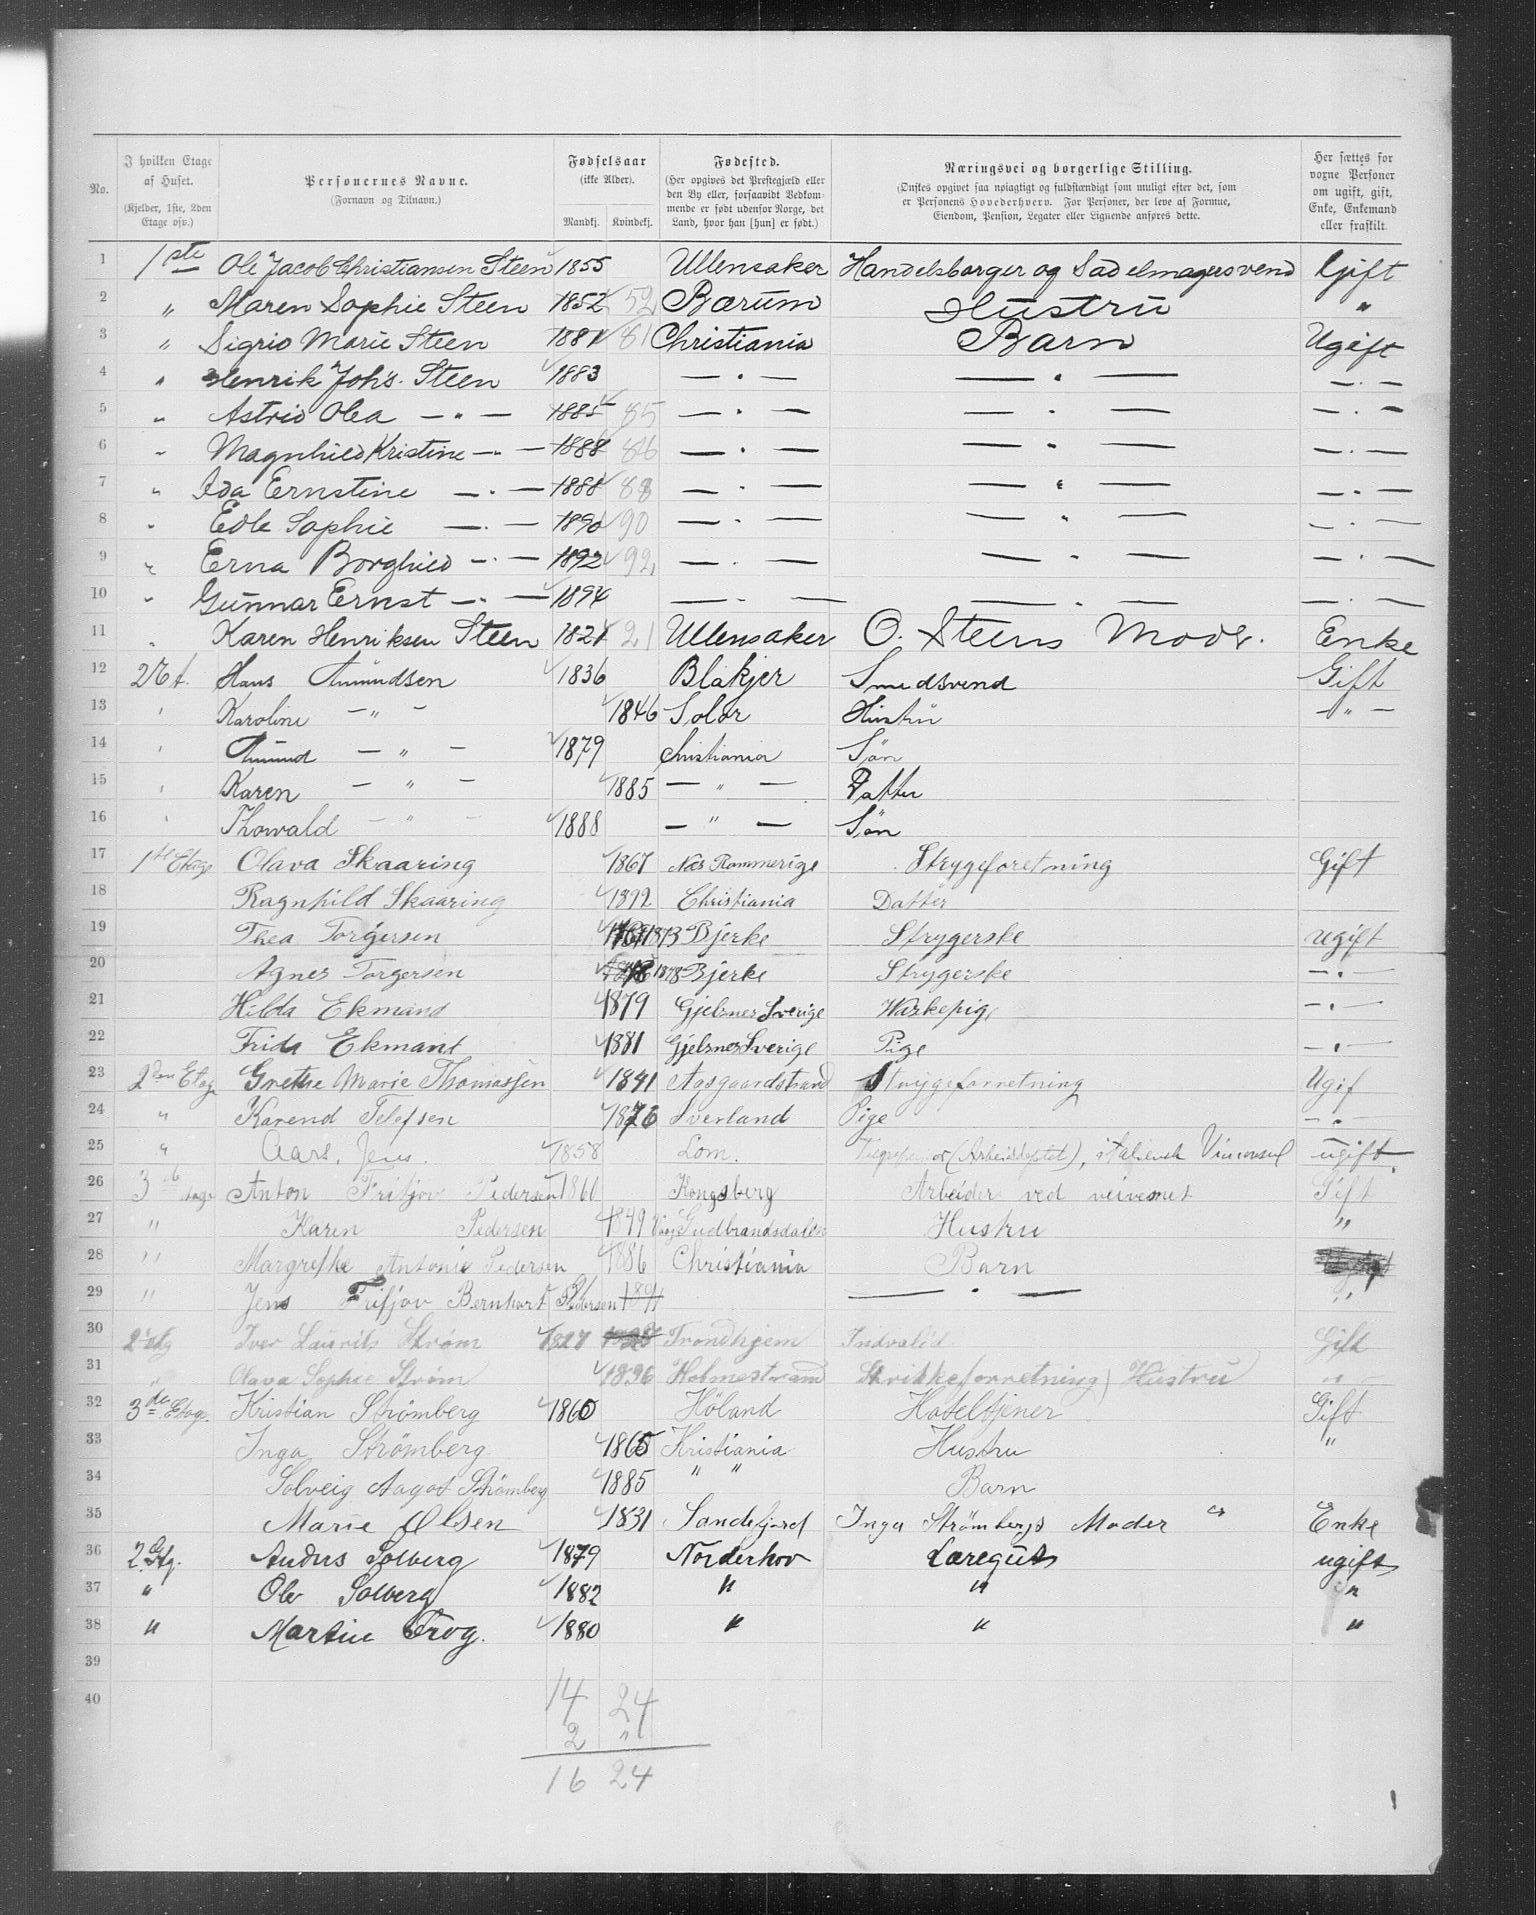 No. | I hvilken Etage af Huset. (Kjelder, 1ste, 2den Etage osv.) | Personernes Navne. (Fornavn og Tilnavn.) | Fødselsaar (ikke Alder). Mandkj. Kvindekj. | Fødested. (Her opgives det Prestegjæld eller den By eller, forsaavidt Vedkommende er født udenfor Norge, det Land, hvor han [hun] er født.) | Næringsvei og borgerlige Stilling. (Ønskes opgivet saa nøiagtigt og fuldstændigt som muligt efter det, som er Personens Hovederhverv. For Personer, der leve af Formue, Eiendom, Pension, Legater eller Lignende anføres dette. | Her sættes for voxne Personer om ugift, gift, Enke, Enkemand eller fraskilt.
1 1ste Ole Jacob Christiansen Steen 1855 Ullensaker Handelsborger og Sadelmagersvend Gift
2 " Maren Sophie Steen 1852 52 Bærum Hustru "
3 " Sigrid Marie Steen 1881 81 Christiania Barn Ugift
4 " Henrik Johs. Steen 1883 — " — — " — — " —
5 " Astrid Olea — " — 1885 85 — " — — " — — " —
6 " Magnhild Kristine — " — 1888 86 — " — — " — — " —
7 " Ida Ernstine — " — 1888 88 — " — — " — — " —
8 " Edle Sophie — " — 1890 90 — " — — " — — " —
9 " Erna Borghild — " — 1892 92 — " — — " — — " —
10 " Gunnar Ernst — " — 1894 — " — — " — — " —
11 " Karen Henriksen Steen 1821 21 Ullensaker O. Steens Moder. Enke
12 2 Et. Hans Amundsen 1836 Blakjer Smedsvend Gift
13 " Karoline — " — 1846 Solør Hustru — " —
14 " Amund — " — 1879 Christiania Søn
15 " Karen — " — 1885 — " — Datter
16 " Thorvald — " — 1888 — " — Søn
17 1ste Etage Olava Skaaring 1867 Næs Rommerige Strygeforetning Gift
18 Ragnhild Skaaring 1892 Christiania Datter
19 Thea Torgersen 1873 Bjerke Strygerske ugift
20 Agnes Torgersen 1878 Bjerke Strygerske — " —
21 Hilda Ekmand 1879 Gjelsnes Sverige Vaskepige — " —
22 Frida Ekmant 1881 Gjelsnes Sverige Pige — " —
23 2den Etag Grethe Marie Thomassen 1841 Aasgaardstrand Strygeforretning Ugif
24 " Karend Telefsen 1876 Sverland Pige — " —
25 " Aars, Jens. 1858 Lom. italiensk Viceconsul ugift
26 3de etage Anton Fritjov Pedersen 1860 Kongsberg Arbeider ved veivesnet Gift
27 " Karen Pedersen 1849 Gudbrandsdalen Hustru "
28 " Margrethe Antonie Pedersen 1886 Christiania Barn
29 " Jens Fritjov Bernhart Pedersen 1891 — " — "
30 2 etg Iver Laurits Strøm 1827 Trondhjem Indvalid Gift
31 " Olava Sophie Strøm 1836 Holmestrand Strikkeforretning) Hustru "
32 3de Etage. Kristian Strömberg 1860 Höland Hoteltjener Gift
33 Inga Strömberg 1865 Kristiania Hustru "
34 Solveig Aagot Strömberg 1885 " " Barn
35 Marie Olsen 1831 Sandefjord Inga Strømbergs Moder " Enke
36 2 Etg. Anders Solberg 1879 Norderhov Læregut ugift
37 " Ole Solberg 1882 " " "
38 " Martin Frog. 1880 " " "
39
40
14 24
2 "
16 24